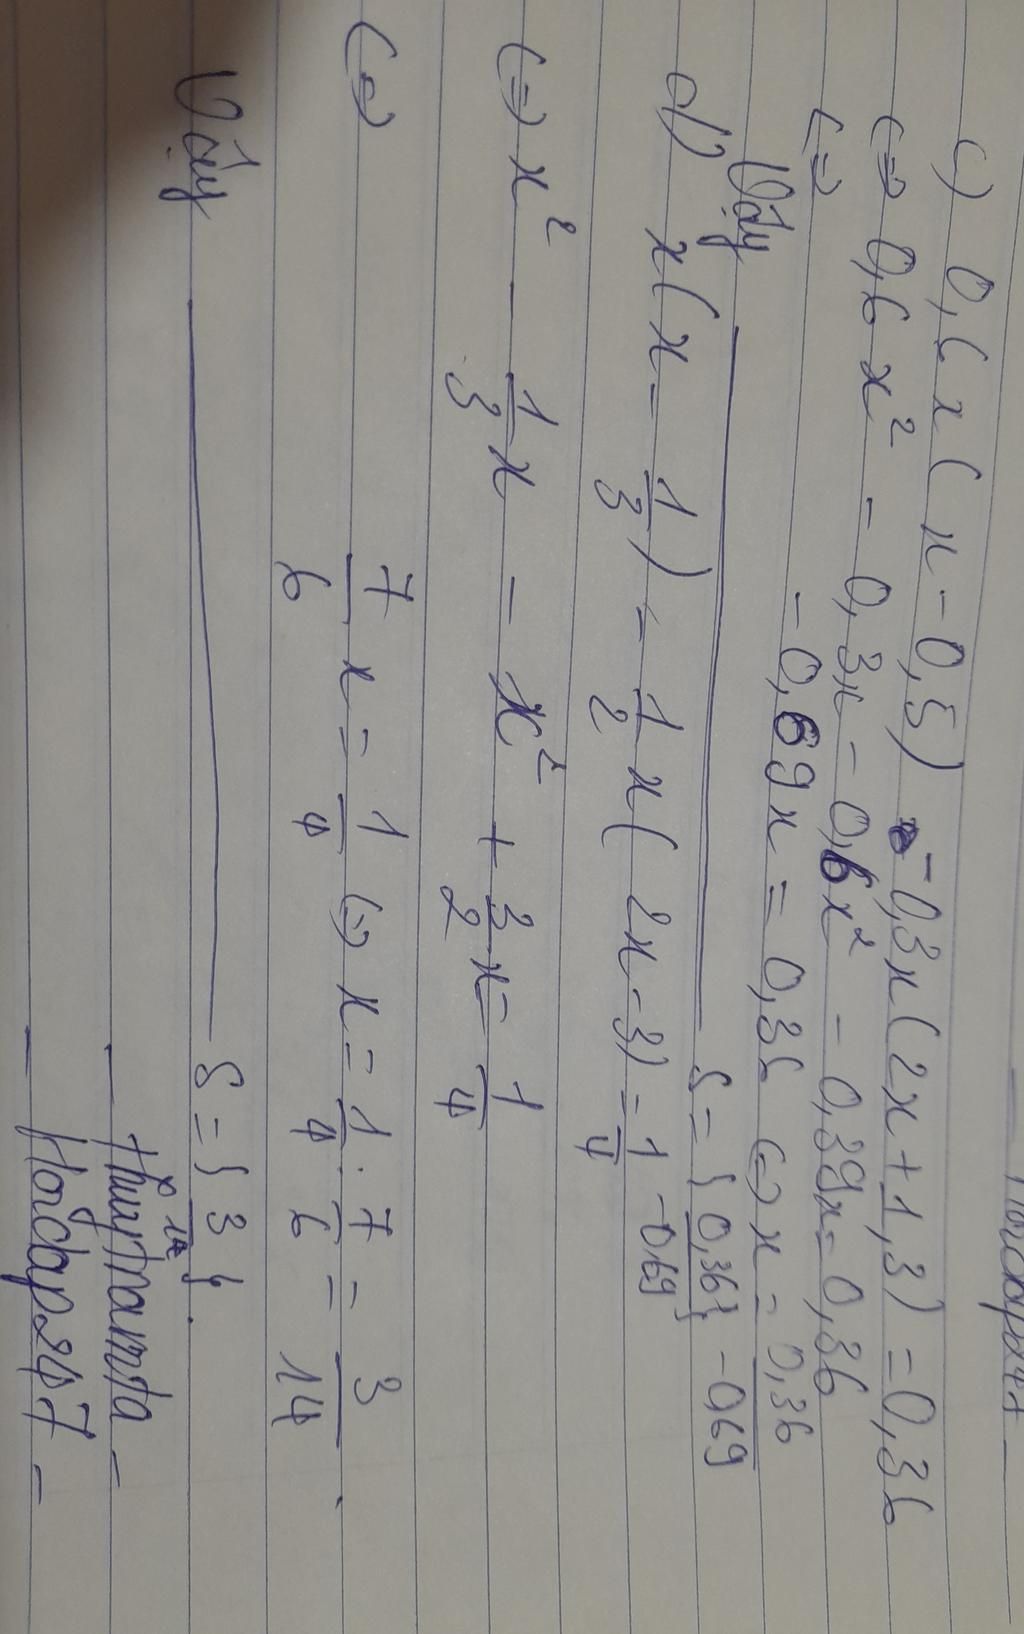 c) 0,6x(x-0,5) -0,3x(2x+1,3)=0,36
(=) 0,6x² - 0,3x - 0,6x² - 0,39x=0,36
(=) -0,69x=0,36 (=) x=0,36/-0,69
Vậy S={0,36/-0,69}
d) x(x-1/3)-1/2x(2x-3)=1/4
(=) x² - 1/3x - x² + 3/2x=1/4
(=) 7/6x=1/4 (=) x=1/4:7/6=3/14.
Vậy S={3/14}.
Hocbap247